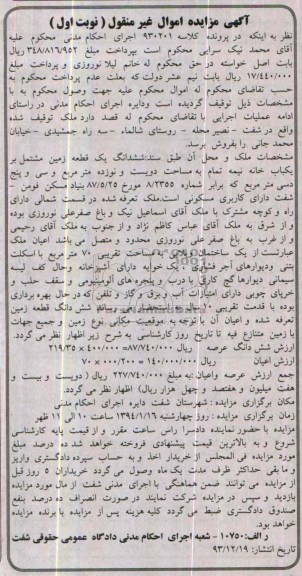 آگهی مزایده اموال غیر منقول ( نوبت اول )
نظر به اینکه در پرونده کلاسه ۹۳۰۲۰۱ اجرای احکام مدنی محکوم علیه
آقای محمد نیک سرایی محکوم است بپرداخت مبلغ ۳۴۸/۸۱۶/۹۵۲ ریال
بابت اصل خواسته در حق محکوم له خانم لیلا نوروزی و پرداخت مبلغ
۱۷/۴۴۰/۰۰۰ ریال بابت نیم عشر دولت که بعلت عدم پرداخت محکوم به
حسب تقاضای محکوم له اموال محکوم علیه جهت وصول محکوم به با
مشخصات ذیل توقیف گردیده است ودایره اجرای احکام مدنی در راستای
ادامه عملیات اجرایی با تقاضای محکوم له قصد دارد ملک توقیف شده
واقع در شفت - نصیر محله - روستای شالماء - سه راه جمشیدی - خیابان
محمد جانی را بفروش برسد.
مشخصات ملک و محل آن طبق سند:ششدانگ یک قطعه زمین مشتمل بر
یکباب خانه نیمه تمام به مساحت دویست و نوزده متر مربع و سی و پنج
دسی متر مربع که برابر شماره ۸/۲۳۵۵ مورخ ۸۷/۵/۲۵ بنیاد مسکن فومن -
شفت دارای کاربری مسکونی است.ملک تعرفه شده در قسمت شمالی دارای
راه و کوچه مشترک با ملک آقای اسماعیل نیک و باغ صفرعلی نوروزی بوده
و از شرق به ملک آقای عباس کاظم نژاد و از جنوب به ملک آقای رحیمی
و از غرب به باغ صفر علی نوروزی محدود و متصل می باشد اعیان ملک
عبارتست از یک ساختمان ویلایی به مساحت تقریبی ۷۰ مترمربع با اسکلت
بتنی ودیوارهای آجر فشاری ، یک خوابه دارای آشپزخانه وحال کف لیسه
سیمانی دیوارها گچ کاری با درب و پنجره های آلومینیومی و سقف حلب و
خرپای چوبی دارای امتیازات آب و برق و گاز و تلفن که در حال بهره برداری
بوده با قدمت تقریبی ۱۰ سال بنا استحضار می رساند شش دانگ قطعه زمین
تعرفه شده و اعیان آن با توجه به موقعیت مکانی نوع زمین و جمیع جهات
با زمین متنازع فیه تا تاریخ روز کارشناسی به شرح زیر اظهار نظر می گردد.
ارزش شش دانگ عرصه ریال ۸۷/۷۴۰/۰۰۰= ۴۰۰/۰۰۰ × ۲۱۹/۳۵
ارزش اعیان ریال ۱۴۰/۰۰۰/۰۰۰= ۲/۰۰۰/۰۰۰ × ۷۰
جمع ارزش عرصه و اعیان به مبلغ ۲۲۷/۷۴۰/۰۰۰ ریال ( دویست و بیست و
هفت میلیون و هفتصد و چهل هزار ریال) اظهار نظر می گردد.
مکان برگزاری مزایده : شهرستان شفت دایره اجرای احکام مدنی
زمان برگزاری مزایده : روز چهارشنبه ۱۳۹۴/۱/۲۶ ساعت ۱۰ الی ۱۱ ظهر
مزایده با حضور نماینده دادسرا راس ساعت مقرر و از قیمت پایه کارشناسی
شروع و به بالاترین قیمت پیشنهادی فروخته خواهد شد ده درصد مبلغ
مورد مزایده فی المجلس از خریدار اخذ و به حساب سپرده دادگستری واریز
و ما بقی حداکثر ظرف مدت یک ماه وصول می گردد خریداران ۵ روز قبل
از مزایده می توانند ضمن هماهنگی با اجرای مدنی شفت از مال مورد مزایده
بازدید و سپس در مزایده شرکت نمایند در صورت انصراف ده درصد بنفع
صندوق دادگستری ضبط می گردد کلیه هزینه پس از مزایده با برنده مزایده
خواهد بود.
ر الف:۱۰۷۵۰ - شعبه اجرای احکام مدنی دادگاه عمومی حقوقی شفت
تاریخ انتشار: ۹۳/۱۲/۱۹